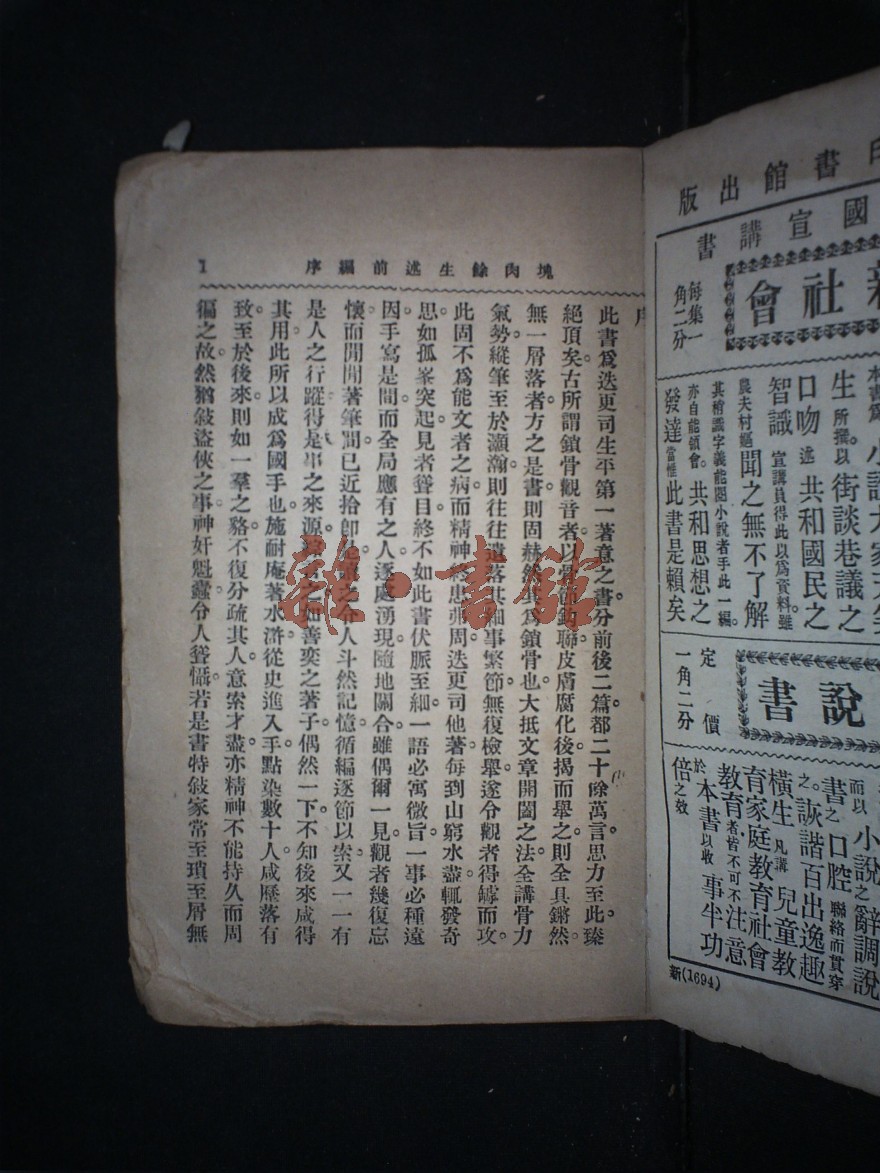 印書館出版
國宣講書
新社會
每集一
角二分
生所撰以街談巷議之
口吻述共和國民之
智識宣講員得此以爲資料。雖
農夫村嫗聞之無不了解
其稍識字義能閱小說者手此一編。
亦自能領會。共和思想之
發達當惟此書是賴矣
說書
定價
一角二分
而以小說之辭調說
書之口腔聯絡而貫穿
之。詼諧百出逸趣
橫生凡講兒童教
育家庭教育社會
教育者皆不可不注意
於本書以收事半功
倍之效
新(1694)
塊肉餘生述前編序
1
序
此書爲迭更司生平第一著意之書。分前後二篇。都二十餘萬言。思力至此。臻
絕頂矣。古所謂鎖骨觀音者。以骨節鉤聯。皮膚腐化後。揭而舉之。則全具鏘然。
無一屑落者。方之是書。則固赫然其爲鎖骨也。大抵文章開闔之法。全講骨力
氣勢。縱筆至於灝瀚。則往往遺落其細事繁節。無復檢舉。遂令觀者得罅而攻。
此固不爲能文者之病。而精神終患弗周。迭更司他著。每到山窮水盡。輒發奇
思。如孤峯突起。見者聳目。終不如此書伏脈至細。一語必寓微旨。一事必種遠
因。手寫是間。而全局應有之人。逐處湧現。隨地關合。雖偶爾一見。觀者幾復忘
懷。而閒閒著筆間。已近拾卽是。讀之令人斗然記憶。循編逐節以索。又一一有
是人之行蹤。得是事之來源。綜言之。如善奕之著子。偶然一下。不知後來咸得
其用。此所以成爲國手也。施耐庵著水滸。從史進入手。點染數十人。咸歷落有
致。至於後來。則如一羣之貉。不復分疏其人。意索才盡。亦精神不能持久而周
徧之故。然猶敍盜俠之事。神奸魁蠹。令人聳懾。若是書特敍家常至瑣至屑無
龍·書館